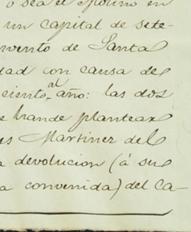 ó sea el Molino en
un capital de sete-
vento de Santa
dad con causa de
ciento al año: las dos
e hande plantear
es Martinez del
a devolucion (á su
a convenida) del ca-